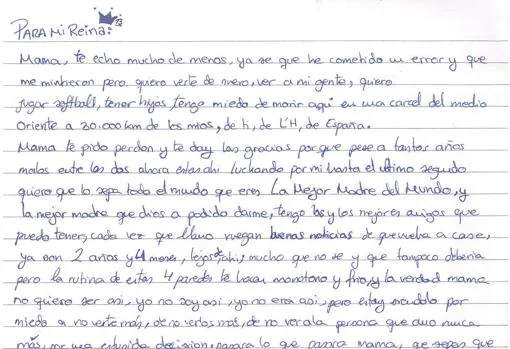 PARA Mi Reina:
Mama, te echo mucho de menos, ya se que he cometido un error y que
me mintieron pero quiero verte de nuevo, ver a mi gente, quiero
jugar softball, tener hijos, tengo miedo de morir aqui en una carcel del medio
Oriente a 20.000 km de los mios, de ti, de L'H, de España.
Mama te pido perdon y te doy las gracias porque pese a tantos años
malos entre las dos ahora estas ahi luchando por mi hasta el ultimo segundo
quiero que lo sepa todo el mundo que eres La Mejor Madre del Mundo, y
la mejor madre que dios a podido darme, tengo los y los mejores amigos que
puedo tener, cada vez que llamo ruegan buenas noticias de que vuelva a casa,
ya son 2 años y 4 meses, lejos de ahi, mucho que no se y que tampoco deberia
pero la rutina de estas 4 paredes te hacen monotono y frio, y la verdad mama
no quiero ser asi, yo no soy asi, yo no era asi, pero estoy por
miedo a no verte más, de no verlos más, de no ver a la persona que amo nunca
más, por una estupida decision, pasara lo que pasara mama, que sepas que